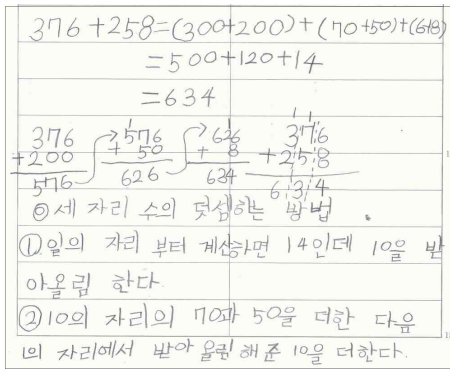 376+258=(300+200)+(70+50)+(6+8)
=500+120+14
=634
376
+200
576
576
+ 50
626
626
+ 8
634
376
+258
634
◎ 세 자리 수의 덧셈하는 방법.
① 일의 자리 부터 계산하면 14인데 10을 받
아올림 한다.
② 10의 자리의 70과 50을 더한 다음
1의 자리에서 받아 올림 해준 10을 더한다.